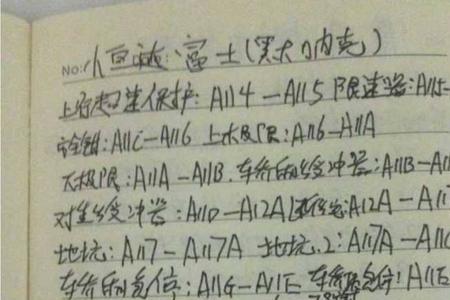 No: 小巨通: 富士(默纳克)
上行超速保护: A114-A115 限速器: A115-
安全钳: A11C-A116 上极限: A116-A11A
下极限: A11A-A11B. 车轿侧缓冲器: A11B-A11
对重缓冲器: A11D-A12A A12A-A117
地坑: A117-A117A 地坑.2: A117A-A11C
车轿的急停: A11G-A11E 急停: A11E